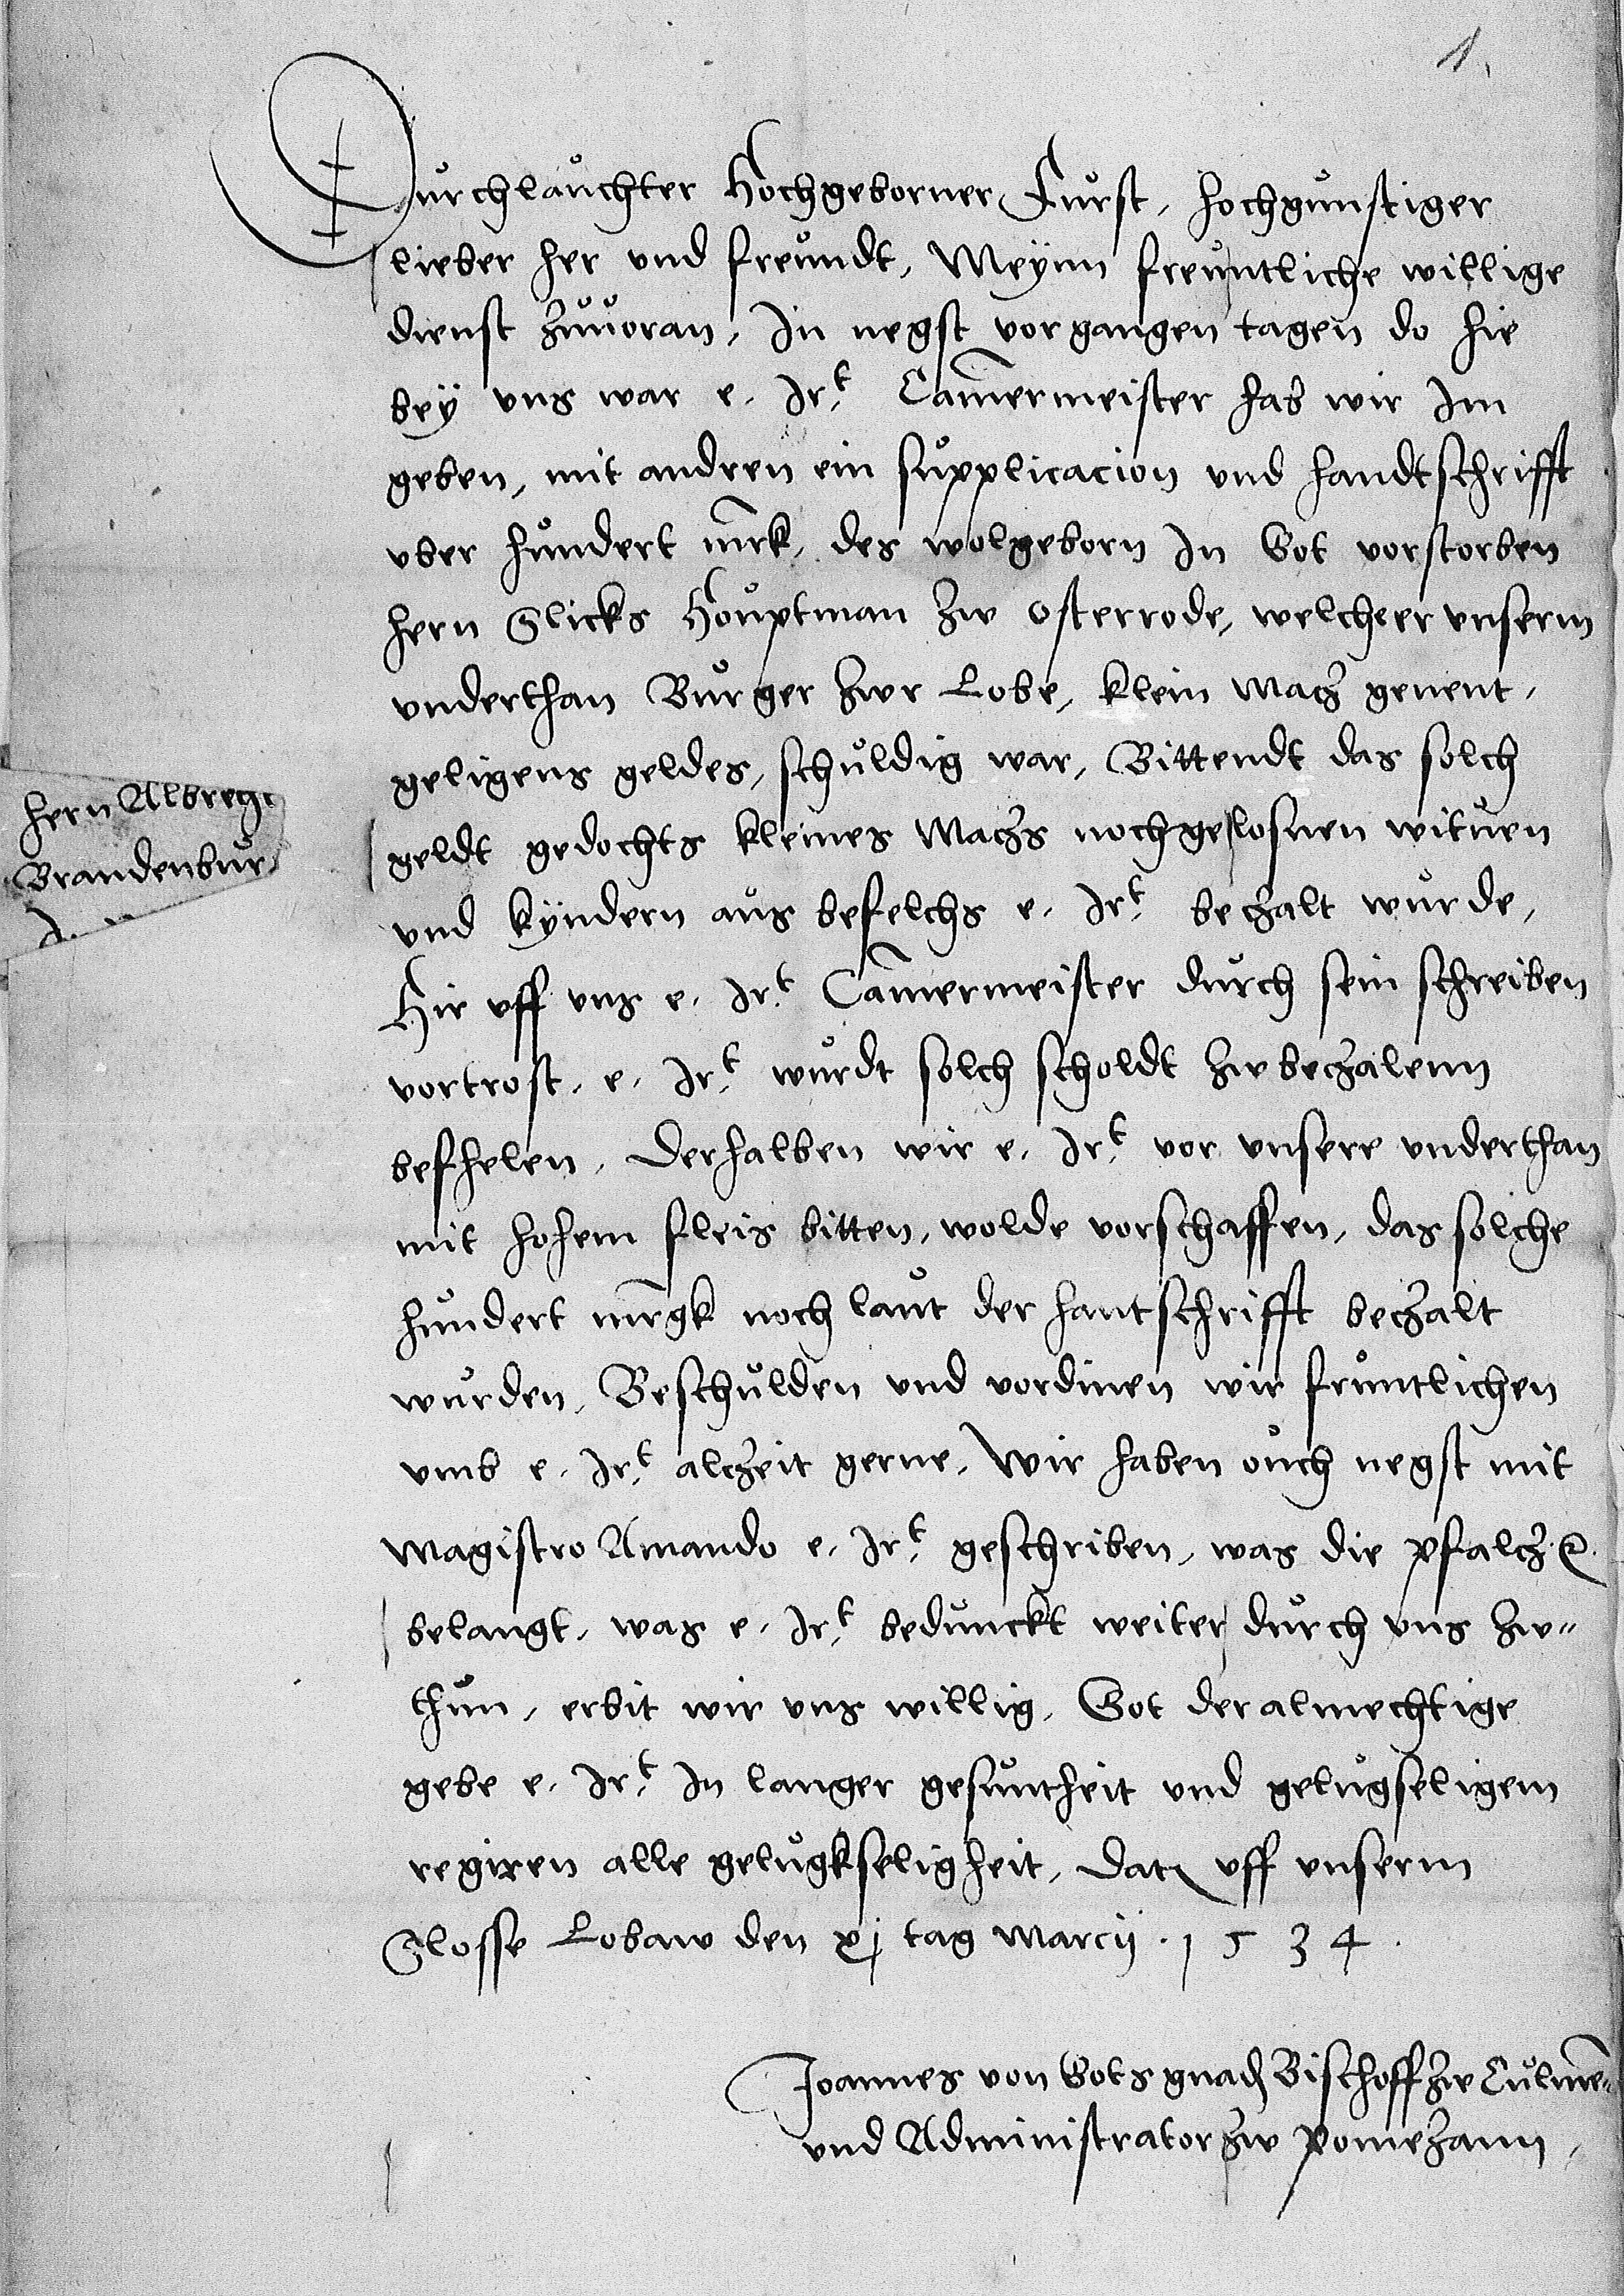 1.
Durchlauchter Hochgeborner Furst, hochgunstiger
lieber her vnd freundt, Meynn freuntliche willige
dienst zuuoran, In negst vorgangen tagen do hie
bey vns war e. Irt. Camermeister hab wir Im
geben, mit andren ein supplicacion vnd handtschrifft
vber hundert mrk, des wolgeborn In Got vorstorben
hern Slicks Houptman zw Osterrode, welcheer vnserm
vnderthan Burger zwr Lobe, klein Macz genent,
geligens geldes, schuldig war, Bittendt das solch
geldt gedochts kleines Maczs nochgelosnen wituen
vnd kyndern aus befelchs e. Irt. beczalt wurde,
Hir vff vns e. Irt. Camermeister durch sein schreiben
vortrost, e. Irt. wurdt solch scholdt zw beczalenn
befhelen, Derhalben wir e. Irt. vor vnsere vnderthan
mit hohem fleis bitten, wolde vorschaffen, das solche
hundert mrgk noch laut der hantschrifft beczalt
wurden, Beschulden vnd vordinen wir fruntlichen
vmb e. Irt. alczeit gerne, Wir haben ouch negst mit
Magistro Amando e. Irt. geschriben, was die pfalcz. &.
belangt, was e. Irt. bedunckt weiter durch vns zw-
thun, erbit wir vns willig, Got der almechtige
gebe e. Irt. In langer gesuntheit vnd gelugseligem
regiren alle gelugkseligheit, Dat. vff vnserm
Slosse Lobaw den xj tag Marcij . 1534.
Joannes von Gots gnad Bischoff zw Culmen
vnd Administrator zw Pomezann,
hern Albrecht
Brandenbur